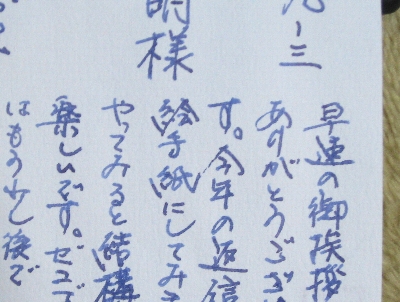 九ー三
明様
早速の御挨拶
ありがとうござ
す。今年の返信
絵手紙にしてみ
やってみると結構
楽しいです。ゼコで
はもう少し後で